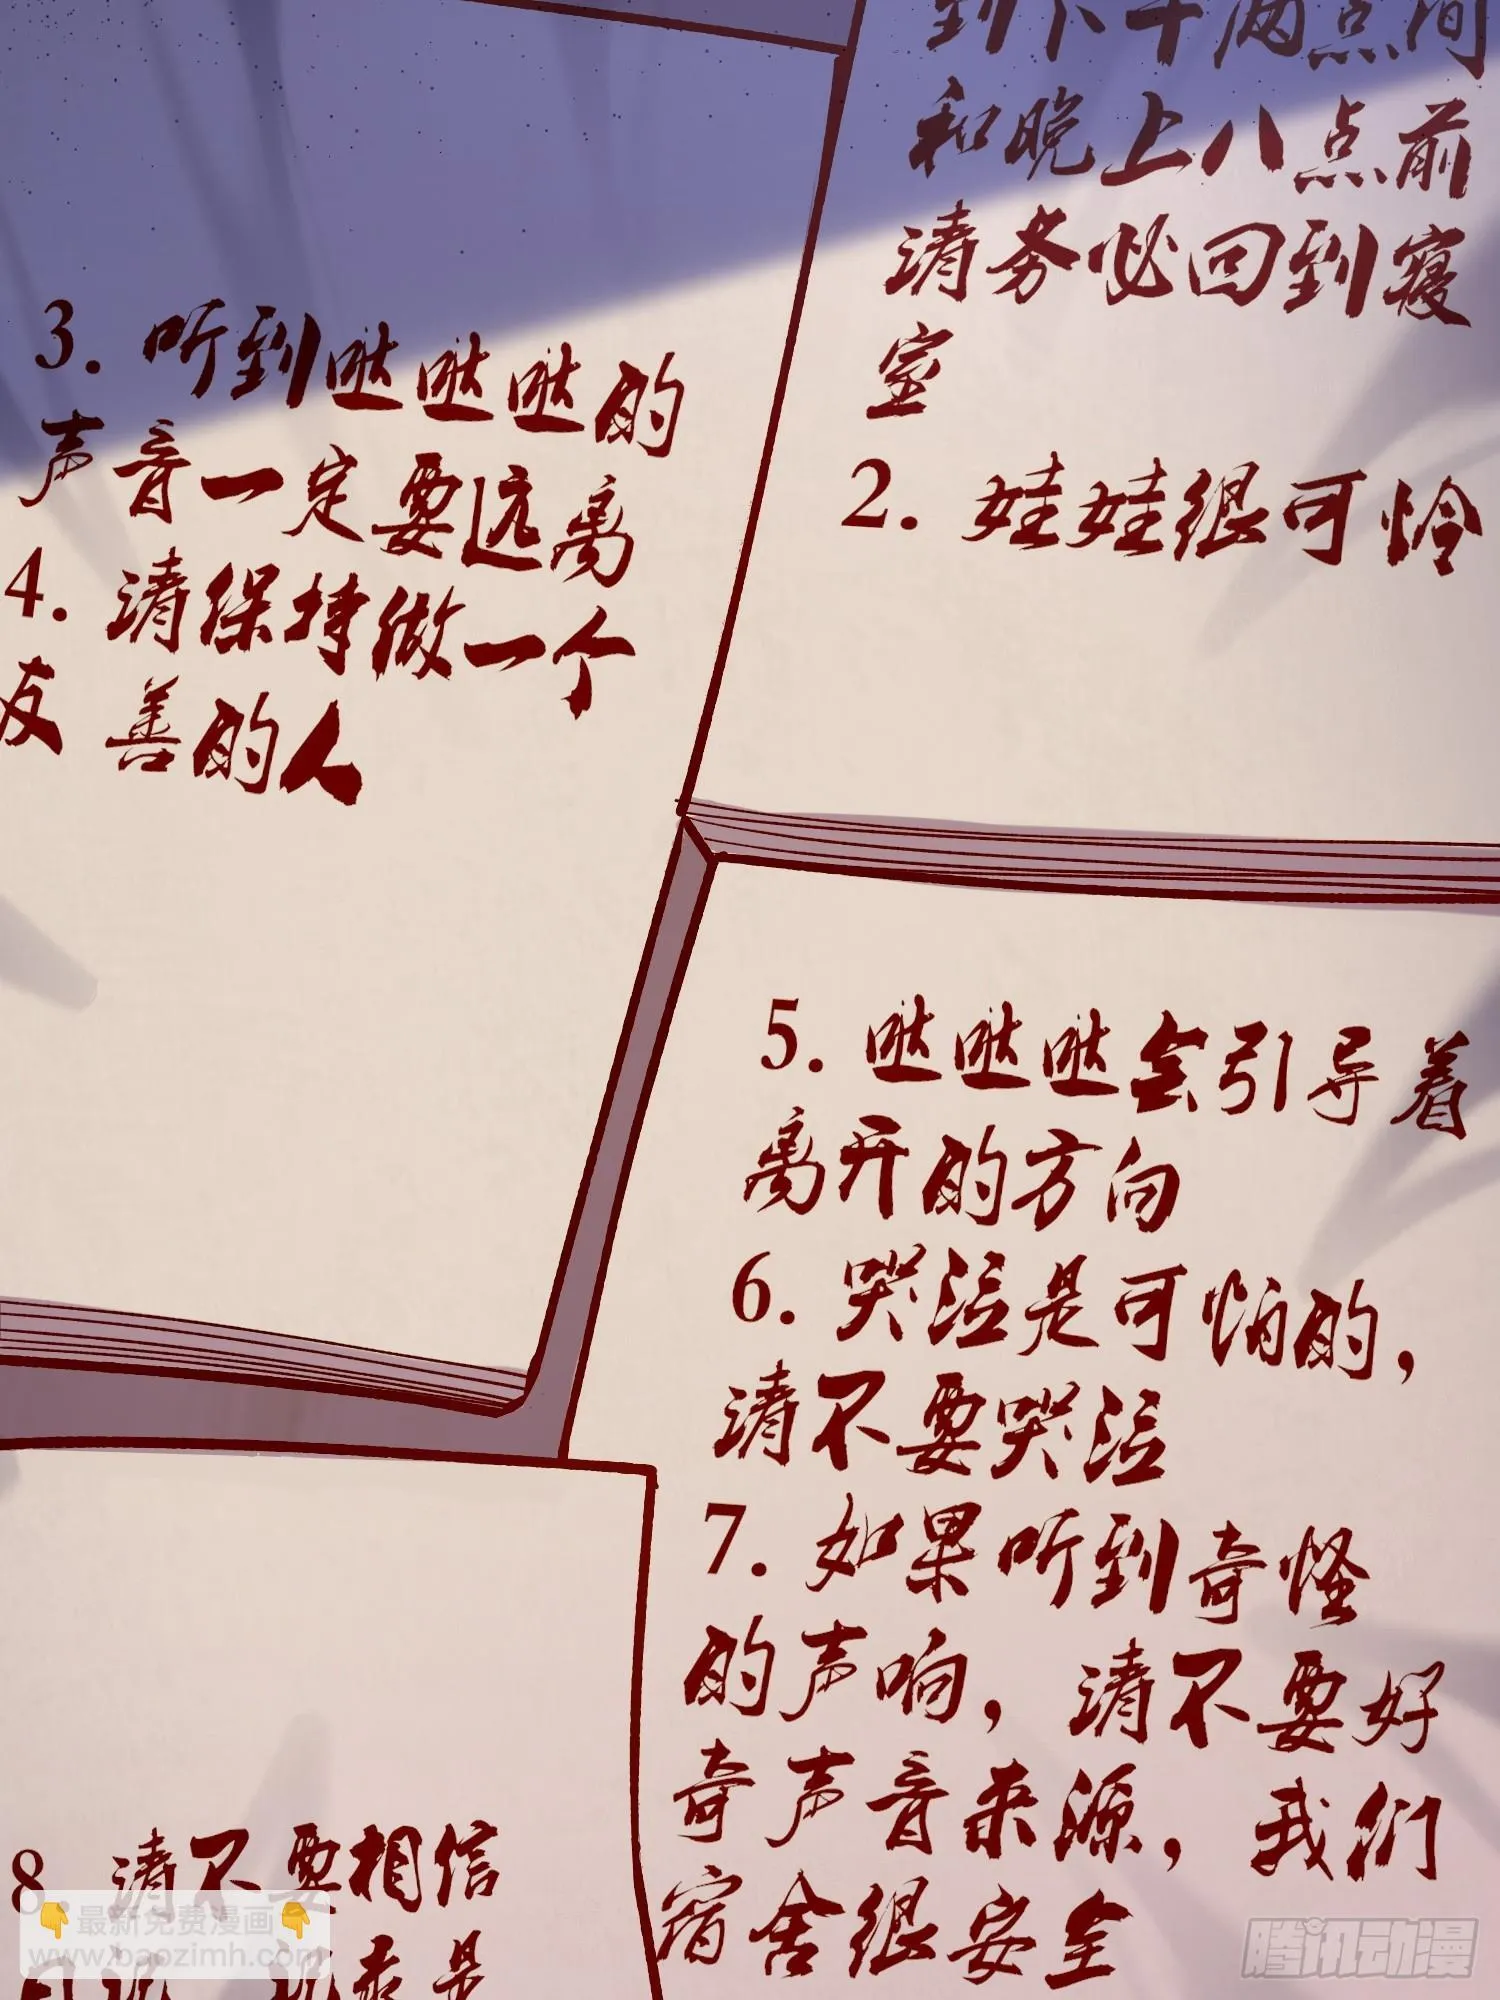 到下午两点间
和晚上八点前
请务必回到寝
室
2. 娃娃很可怜
3. 听到哒哒哒的
声音一定要远离
4. 请保持做一个
友善的人
5. 哒哒哒会引导着
离开的方向
6. 哭泣是可怕的,
请不要哭泣
7. 如果听到奇怪
的声响, 请不要好
奇声音来源, 我们
宿舍很安全
8. 请不要相信
最新免费漫画
www.baozimh.com
腾讯动漫